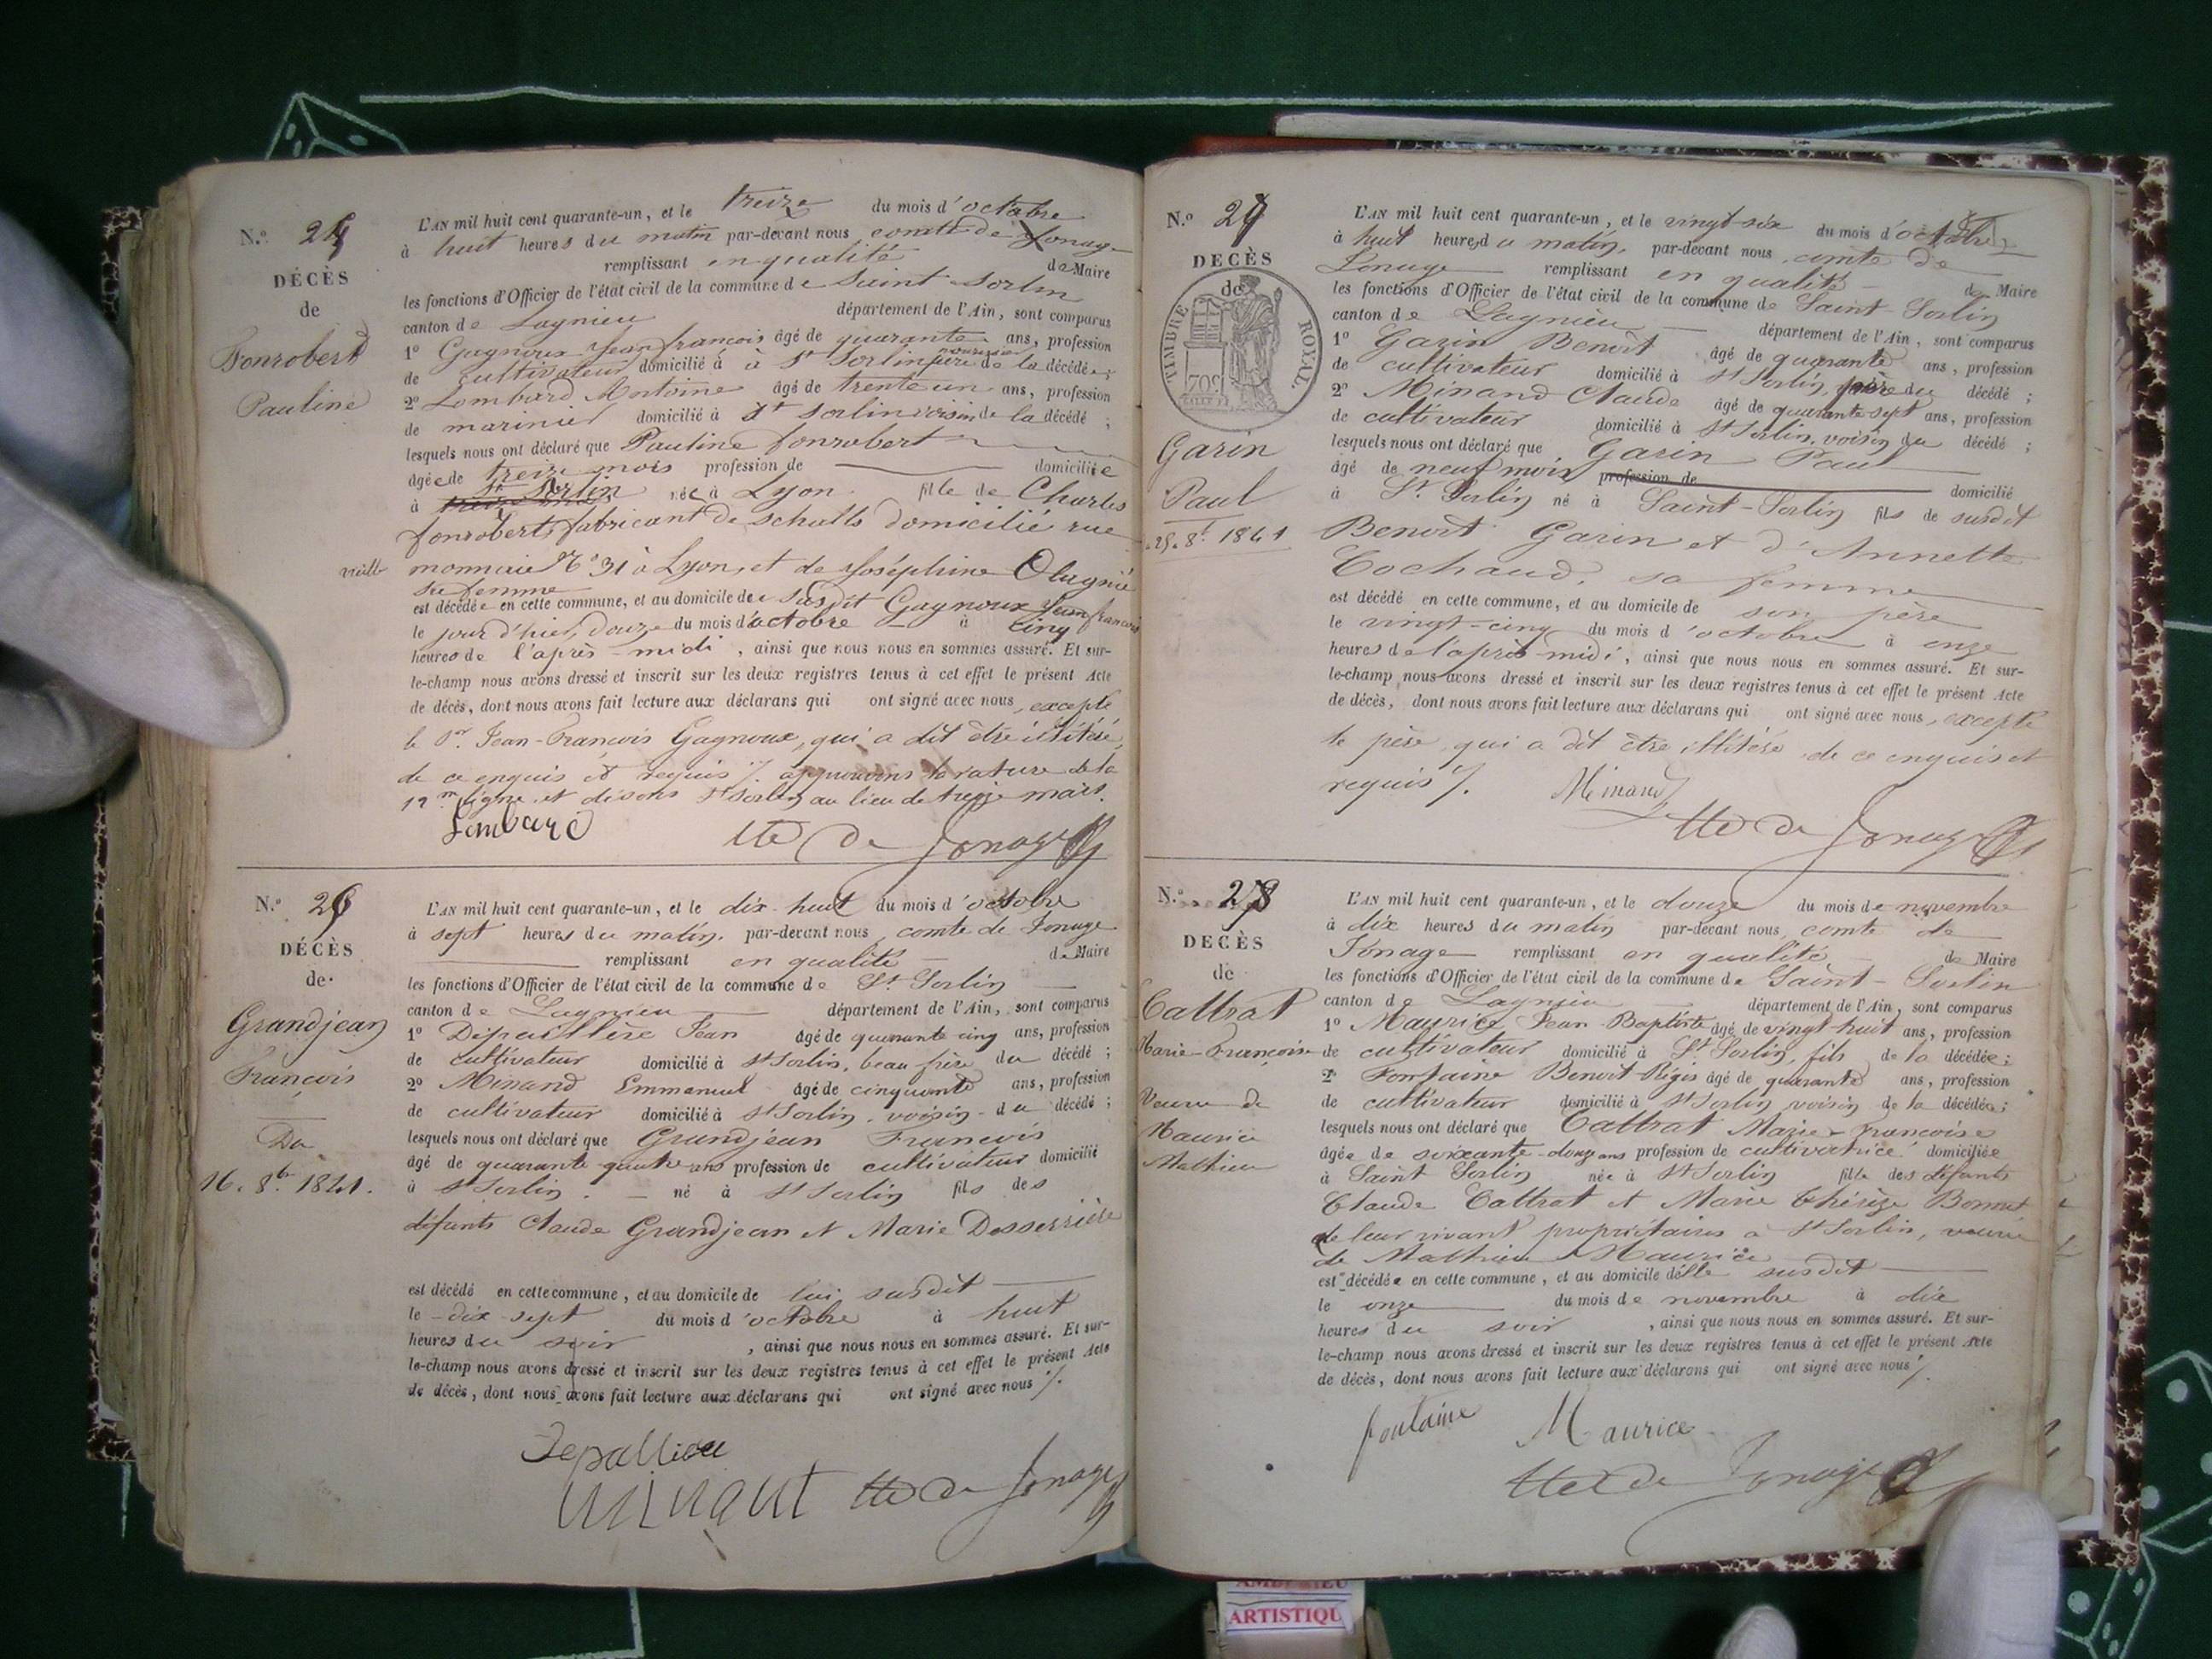 N.º 25
DÉCÈS
de
Fonrobert
Pauline
L'AN mil huit cent quarante-un, et le treize du mois d'octobre
à huit heures du matin par-devant nous comte de Jonage
remplissant en qualité de Maire
les fonctions d'Officier de l'état civil de la commune de Saint-Sorlin
canton de Lagnieu département de l'Ain, sont comparus
1º Gagnoux Jean françois âgé de quarante ans, profession
de cultivateur domicilié à à St Sorlin père nourricier de la décédée;
2º Lombard Antoine âgé de trente un ans, profession
de marinier domicilié à St Sorlin voisin de la décédé;
lesquels nous ont déclaré que Pauline fonrobert
âgée de treize mois profession de domiciliée
à St Sorlin née à Lyon fille de Charles
fonrobert, fabricant de schalls domicilié rue
vieille monnaie Nº 31 à Lyon, et de Joséphine
sa femme
est décédée en cette commune, et au domicile de susdit Gagnoux Jean françois
le jour d'hier, douze du mois d'octobre à cinq
heures de l'après-midi, ainsi que nous nous en sommes assuré. Et sur-
le-champ nous avons dressé et inscrit sur les deux registres tenus à cet effet le présent Acte
de décès, dont nous avons fait lecture aux déclarans qui ont signé avec nous, excepté
le Sr Jean-François Gagnoux, qui a dit être illitéré,
de ce enquis et requis ./. approuvons la rature de la
12me ligne, et disons St Sorlin au lieu de treize mois.
Lombard Cte de Jonage
N.º 26
DÉCÈS
de
Grandjean
François
Du
16. 8bre 1841.
L'AN mil huit cent quarante-un, et le dix-huit du mois d'octobre
à sept heures du matin, par-devant nous comte de Jonage
remplissant en qualité de Maire
les fonctions d'Officier de l'état civil de la commune de St Sorlin
canton de Lagnieu département de l'Ain, sont comparus
1º Jean âgé de quarante cinq ans, profession
de cultivateur domicilié à St Sorlin, beau frère du décédé;
2º Minand Emmanuel âgé de cinquante ans, profession
de cultivateur domicilié à St Sorlin, voisin du décédé;
lesquels nous ont déclaré que Grandjean François
âgé de quarante quatre ans profession de cultivateur domicilié
à St Sorlin né à St Sorlin fils des
défunts Claude Grandjean et Marie
est décédé en cette commune, et au domicile de lui susdit
le dix sept du mois d'octobre à huit
heures du soir, ainsi que nous nous en sommes assuré. Et sur-
le-champ nous avons dressé et inscrit sur les deux registres tenus à cet effet le présent Acte
de décès, dont nous avons fait lecture aux déclarans qui ont signé avec nous ./.
Minant Cte de Jonage
N.º 27
DECÈS
de
TIMBRE ROYAL
Garin
Paul
25. 8bre 1841
L'AN mil huit cent quarante-un, et le vingt-six du mois d'octobre
à huit heures du matin, par-devant nous comte de
Jonage remplissant en qualité de Maire
les fonctions d'Officier de l'état civil de la commune de Saint-Sorlin
canton de Lagnieu département de l'Ain, sont comparus
1º Garin Benoit âgé de quarante ans, profession
de cultivateur domicilié à St Sorlin, père du décédé;
2º Minand Claude âgé de quarante-sept ans, profession
de cultivateur domicilié à St Sorlin, voisin du décédé;
lesquels nous ont déclaré que Garin Paul
âgé de neuf mois profession de domicilié
à St Sorlin né à Saint-Sorlin fils de susdit
Benoit Garin et d'Annette
Cochaud, sa femme
est décédé en cette commune, et au domicile de son père
le vingt-cinq du mois d'octobre à onze
heures de l'après-midi, ainsi que nous nous en sommes assuré. Et sur-
le-champ nous avons dressé et inscrit sur les deux registres tenus à cet effet le présent Acte
de décès, dont nous avons fait lecture aux déclarans qui ont signé avec nous, excepté
le père, qui a dit être illitéré, de ce enquis et
requis ./. Minand
Cte de Jonage
N.º 28
DECÈS
de
Cattrat
Marie-Françoise
Veuve de
Maurice
Mathieu
L'AN mil huit cent quarante-un, et le douze du mois de novembre
à dix heures du matin par-devant nous comte de
Jonage remplissant en qualité de Maire
les fonctions d'Officier de l'état civil de la commune de Saint-Sorlin
canton de Lagnieu département de l'Ain, sont comparus
1º Maurice Jean-Baptiste âgé de vingt-huit ans, profession
de cultivateur domicilié à St Sorlin, fils de la décédée;
2º Fontaine Benoit-Régis âgé de quarante ans, profession
de cultivateur domicilié à St Sorlin voisin de la décédée;
lesquels nous ont déclaré que Cattrat Marie-françoise
âgée de soixante-douze ans profession de cultivatrice domiciliée
à Saint Sorlin née à St Sorlin fille des défunts
Claude Cattrat et Marie Thérèze Bonnet
de leur vivant propriétaires à St Sorlin, veuve
de Mathieu Maurice
est décédée en cette commune, et au domicile d'elle susdit
le onze du mois de novembre à dix
heures du soir, ainsi que nous nous en sommes assuré. Et sur-
le-champ nous avons dressé et inscrit sur les deux registres tenus à cet effet le présent Acte
de décès, dont nous avons fait lecture aux déclarans qui ont signé avec nous ./.
fontaine Maurice
Cte de Jonage
ARTISTIQU